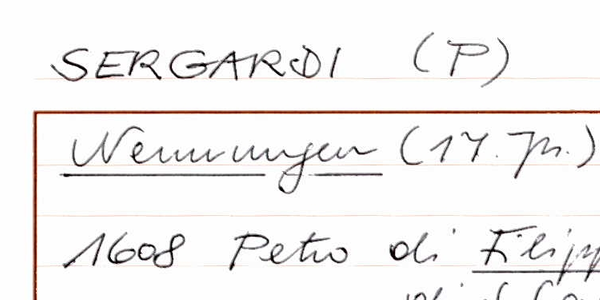 SERGARDI (P)
Nennungen (17. Jh.)
1608 Petro di Filipp
di